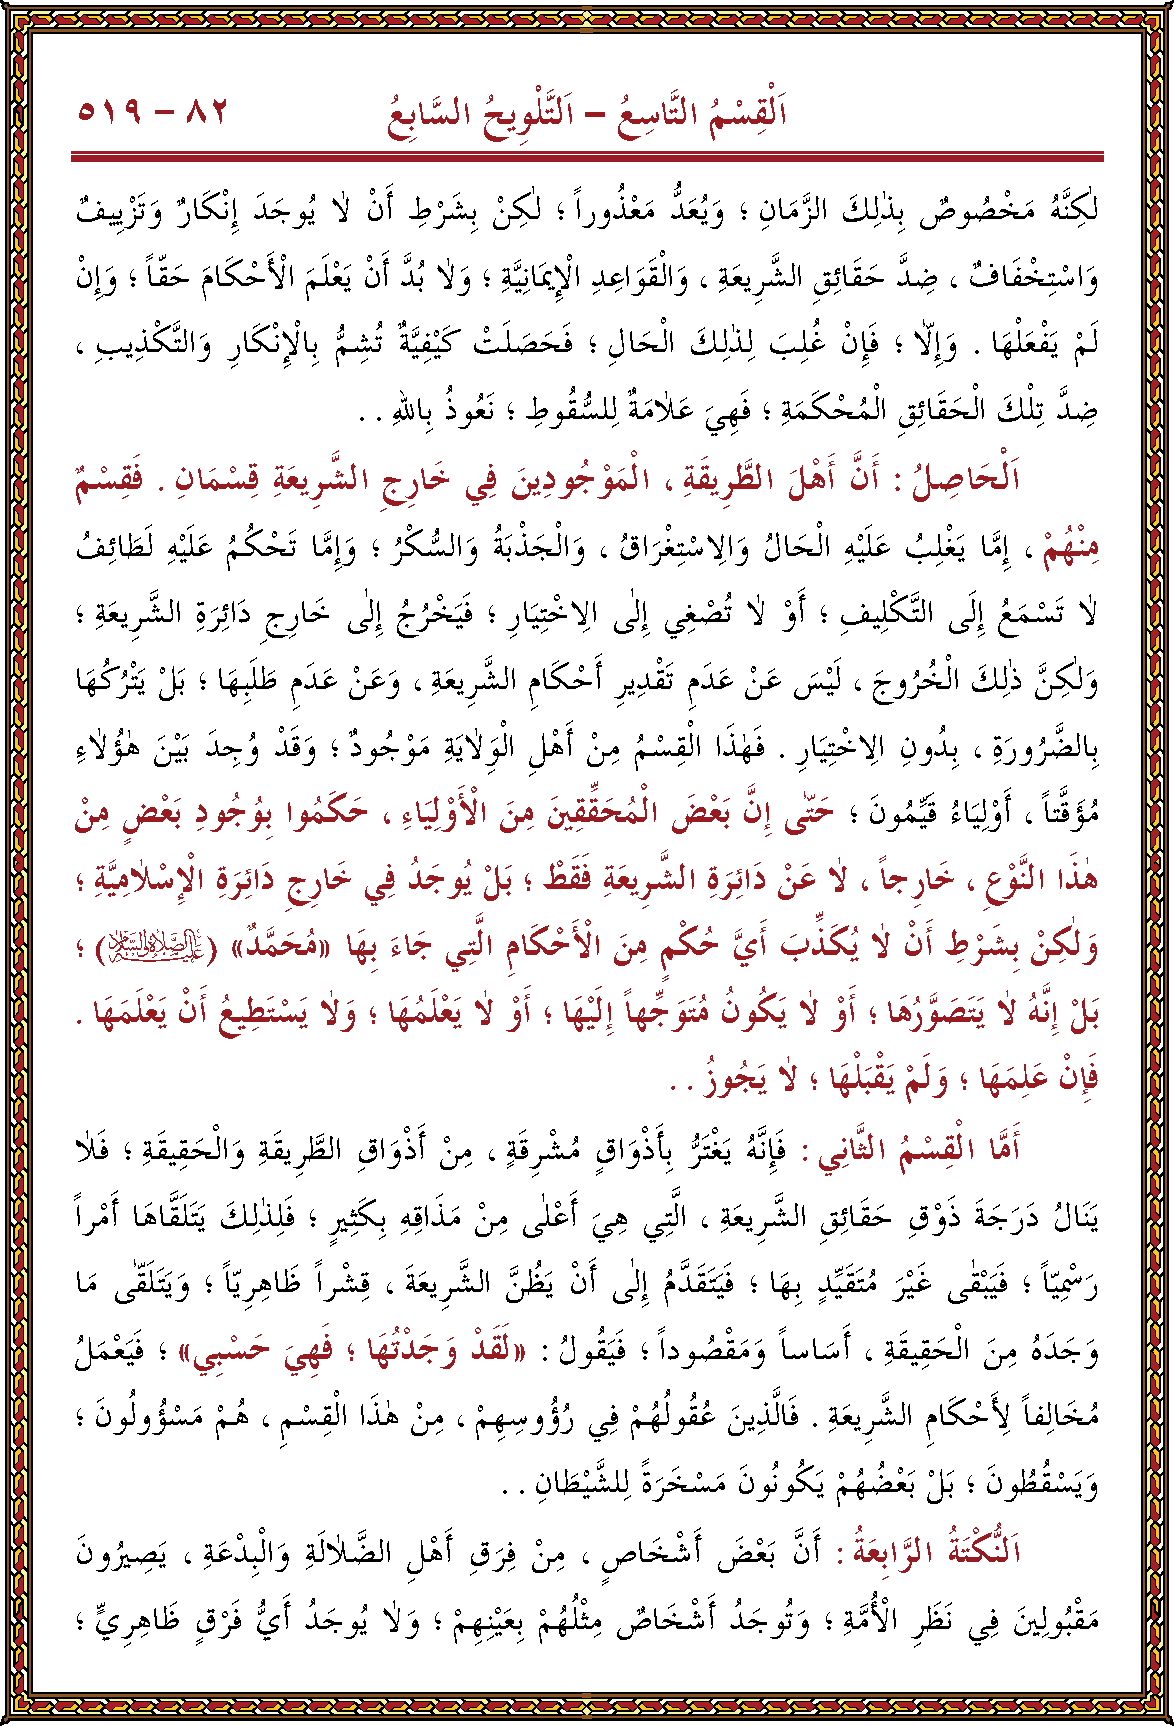 اَلْقِسْمُ التَّاسِعُ – اَلتَّلْوِيحُ السَّابِعُ ٨٢ – ٥١٩
لٰكِنَّهُ مَخْصُوصٌ بِذٰلِكَ الزَّمَانِ ؛ وَيُعَدُّ مَعْذُوراً ؛ لٰكِنْ بِشَرْطِ أَنْ لاٰ يُوجَدَ إِنْكَارٌ وَتَزْيِيفٌ
وَاسْتِخْفَافٌ ، ضِدَّ حَقَائِقِ الشَّرِيعَةِ ، وَالْقَوَاعِدِ الْإِيمَانِيَّةِ ؛ وَلاٰ بُدَّ أَنْ يَعْلَمَ الْأَحْكَامَ حَقّاً ؛ وَإِنْ
لَمْ يَفْعَلْهَا . وَإِلاّٰ ؛ فَإِنْ غُلِبَ لِذٰلِكَ الْحَالِ ؛ فَحَصَلَتْ كَيْفِيَّةٌ تُشِمُّ بِالْإِنْكَارِ وَالتَّكْذِيبِ ،
ضِدَّ تِلْكَ الْحَقَائِقِ الْمُحْكَمَةِ ؛ فَهِيَ عَلاٰمَةٌ لِلسُّقُوطِ ؛ نَعُوذُ بِاللهِ . .
اَلْحَاصِلُ : أَنَّ أَهْلَ الطَّرِيقَةِ ، الْمَوْجُودِينَ فِي خَارِجِ الشَّرِيعَةِ قِسْمَانِ . فَقِسْمٌ
مِنْهُمْ ، إِمَّا يَغْلِبُ عَلَيْهِ الْحَالُ وَالاِسْتِغْرَاقُ ، وَالْجَذْبَةُ وَالسُّكْرُ ؛ وَإِمَّا تَحْكُمُ عَلَيْهِ لَطَائِفُ
لاٰ تَسْمَعُ إِلَى التَّكْلِيفِ ؛ أَوْ لاٰ تُصْغِي إِلَى الاِخْتِيَارِ ؛ فَيَخْرُجُ إِلَى خَارِجِ دَائِرَةِ الشَّرِيعَةِ ؛
وَلٰكِنَّ ذٰلِكَ الْخُرُوجَ ، لَيْسَ عَنْ عَدَمِ تَقْدِيرِ أَحْكَامِ الشَّرِيعَةِ ، وَعَنْ عَدَمِ طَلَبِهَا ؛ بَلْ يَتْرُكُهَا
بِالضَّرُورَةِ ، بِدُونِ الاِخْتِيَارِ . فَهٰذَا الْقِسْمُ مِنْ أَهْلِ الْوَلاٰيَةِ مَوْجُودٌ ؛ وَقَدْ وُجِدَ بَيْنَ هٰؤُلاٰءِ
مُؤَقَّتاً ، أَوْلِيَاءُ قَيِّمُونَ ؛ حَتّٰى إِنَّ بَعْضَ الْمُحَقِّقِينَ مِنَ الْأَوْلِيَاءِ ، حَكَمُوا بِوُجُودِ بَعْضٍ مِنْ
هٰذَا النَّوْعِ ، خَارِجاً ، لاٰ عَنْ دَائِرَةِ الشَّرِيعَةِ فَقَطْ ؛ بَلْ يُوجَدُ فِي خَارِجِ دَائِرَةِ الْإِسْلاٰمِيَّةِ ؛
وَلٰكِنْ بِشَرْطِ أَنْ لاٰ يُكَذِّبَ أَيَّ حُكْمٍ مِنَ الْأَحْكَامِ الَّتِي جَاءَ بِهَا «مُحَمَّدٌ» (عليه الصلاة والسلام) ؛
بَلْ إِنَّهُ لاٰ يَتَصَوَّرُهَا ؛ أَوْ لاٰ يَكُونُ مُتَوَجِّهاً إِلَيْهَا ؛ أَوْ لاٰ يَعْلَمُهَا ؛ وَلاٰ يَسْتَطِيعُ أَنْ يَعْلَمَهَا .
فَإِنْ عَلِمَهَا ؛ وَلَمْ يَقْبَلْهَا ؛ لاٰ يَجُوزُ . .
أَمَّا الْقِسْمُ الثَّانِي : فَإِنَّهُ يَغْتَرُّ بِأَذْوَاقٍ مُشْرِقَةٍ ، مِنْ أَذْوَاقِ الطَّرِيقَةِ وَالْحَقِيقَةِ ؛ فَلاٰ
يَنَالُ دَرَجَةَ ذَوْقِ حَقَائِقِ الشَّرِيعَةِ ، الَّتِي هِيَ أَعْلٰى مِنْ مَذَاقِهِ بِكَثِيرٍ ؛ فَلِذٰلِكَ يَتَلَقَّاهَا أَمْراً
رَسْمِيّاً ؛ فَيَبْقٰى غَيْرَ مُتَقَيِّدٍ بِهَا ؛ فَيَتَقَدَّمُ إِلٰى أَنْ يَظُنَّ الشَّرِيعَةَ ، قِشْراً ظَاهِرِيّاً ؛ وَيَتَلَقّٰى مَا
وَجَدَهُ مِنَ الْحَقِيقَةِ ، أَسَاساً وَمَقْصُوداً ؛ فَيَقُولُ : «لَقَدْ وَجَدْتُهَا ؛ فَهِيَ حَسْبِي» ؛ فَيَعْمَلُ
مُخَالِفاً لِأَحْكَامِ الشَّرِيعَةِ . فَالَّذِينَ عُقُولُهُمْ فِي رُؤُوسِهِمْ ، مِنْ هٰذَا الْقِسْمِ ، هُمْ مَسْؤُولُونَ ؛
وَيَسْقُطُونَ ؛ بَلْ بَعْضُهُمْ يَكُونُونَ مَسْخَرَةً لِلشَّيْطَانِ . .
اَلنُّكْتَةُ الرَّابِعَةُ : أَنَّ بَعْضَ أَشْخَاصٍ ، مِنْ فِرَقِ أَهْلِ الضَّلاٰلَةِ وَالْبِدْعَةِ ، يَصِيرُونَ
مَقْبُولِينَ فِي نَظَرِ الْأُمَّةِ ؛ وَتُوجَدُ أَشْخَاصٌ مِثْلُهُمْ بِعَيْنِهِمْ ؛ وَلاٰ يُوجَدُ أَيُّ فَرْقٍ ظَاهِرِيٍّ ؛